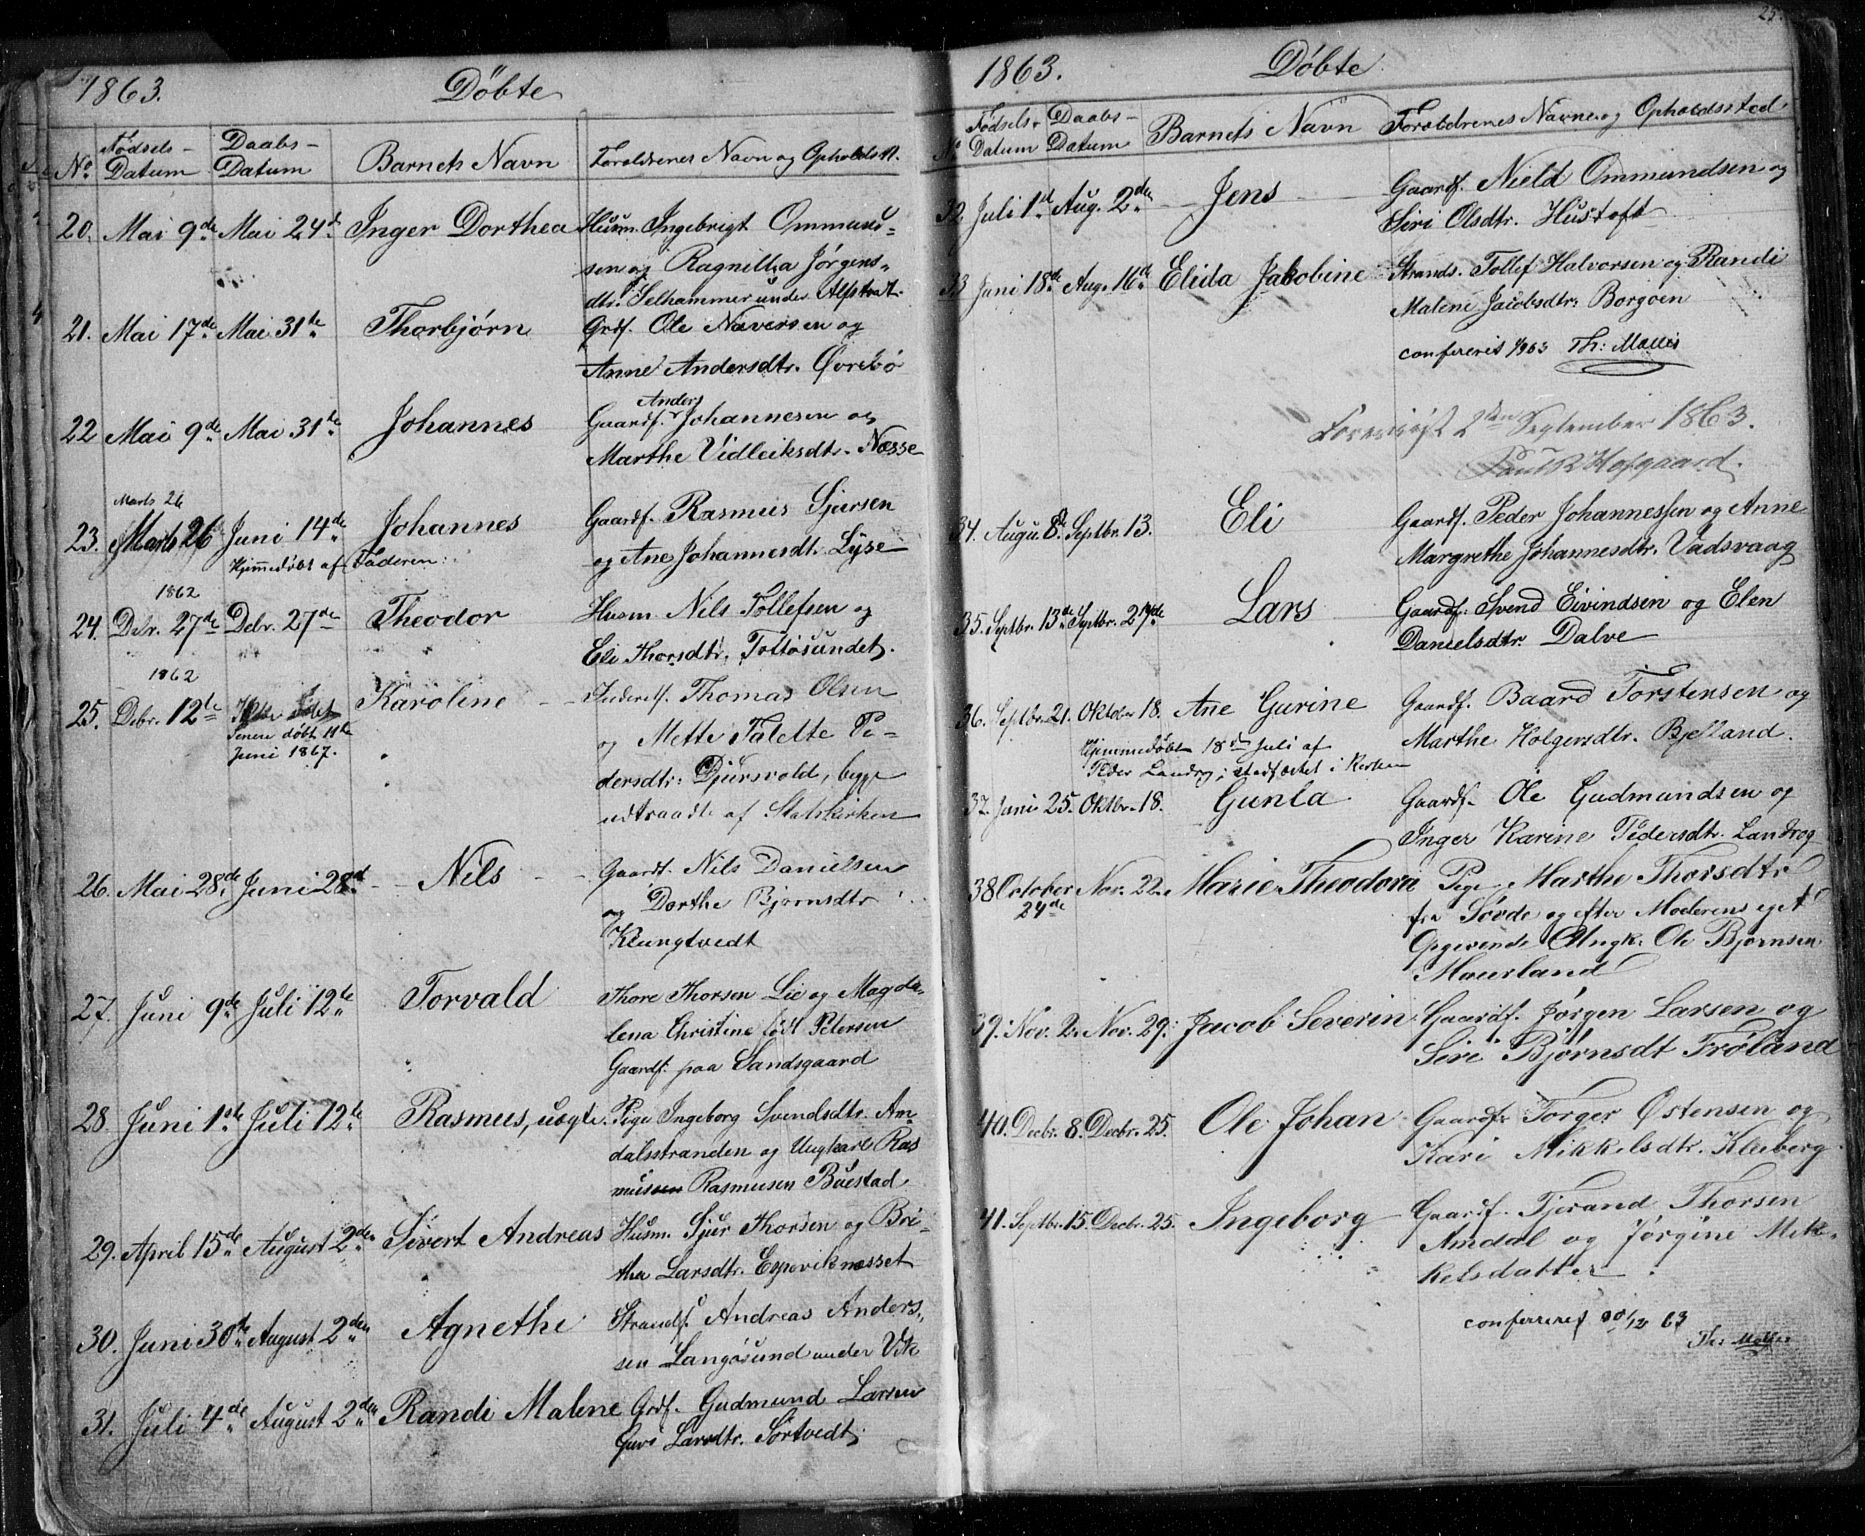 1863.
Döbte
No
Fødsels-
Datum
Daabs-
Datum
Barnets Navn
Forældrenes Navn og Opholdsst.
20. Mai 9de Mai 24d Inger Dorthea Husm. Ingebrigt Ommund-
sen og Ragnilha Jørgens-
dtr. Selhammer under Alfstrat
21. Mai 17de Mai 31te Thorbjørn Grdf. Ole Naversen og
Anne Andersdtr. Øvrebø
Anders
22 Mai 9de Mai 31te Johannes Gaardf. Johannesen og
Marthe Vidleiksdtr. Næsse
Marts 26
23. Marts 26 Juni 14de Johannes Gaardf. Rasmus Sjursen
Hjemmedøbt af Faderen
og Ane Johannesdt. Lyse
1862
24. Debr. 27de Debr. 27de Theodor Husm Nils Tollefsen og
Eli Thorsdtr. Toltøsundet.
1862
25. Debr. 12te Karoline Inderst. Thomas Olsen
Senere døbt 11te
Juni 1867.
og Mette Talette Pe-
dersdtr: Djursvold, begge
udtraadte af Statskirken
26. Mai 28de Juni 28d Nils Gaardf. Nils Danielsen
og Dorthe Bjørnsdtr
Klungtvedt
27. Juni 9de Juli 12te Torvald Thore Thorsen Lie og Magda-
lena Christine født Petersen
Gaardf. paa Sandsgaard
28. Juni 1ste Juli 12te Rasmus, uægte. Pige Ingeborg Svendsdtr. Am
dalsstranden og Ungkarl Ras
mussen Rasmusen Buestad
29. April 15de August 2den Sivert Andreas Husm. Sjur Thorsen og Bri-
tha Larsdtr. Espeviknæsset
30. Juni 30te August 2den Agnethe Strandf. Andreas Anders-
sen Langøsund under Vik
31. Juli 4de August 2den Randi Malene Grdf. Gudmund Larsen
Guri Larsdtr. Sørtvedt
25.
1863.
Döbte
No
Fødsels-
Datum
Daabs-
Datum
Barnets Navn
Forældrenes Navne og Opholdssted
32. Juli 1d Aug. 2den Jens Gaardf. Nield Ommundsen og
Siri Olsdtr. Hustoft
33 Juni 18de Aug. 16de Elida Jakobine Strands. Tollef Halvorsen og Randi
Malene Jacobsdtr. Borgøen
confereret 1/9 63 Th: Møller
Forevist 2den September 1863.
Paul R Hofgaard.
34. Augu. 8de Septbr. 13. Eli Gaardf. Peder Johannessen og Anne
Margrethe Johannesdtr. Vadsvaag
35. Septbr. 13de Septbr. 27de Lars Gaardf. Svend Eivindsen og Elen
Danielsdtr. Dalve
36. Septbr. 21. Oktober 18. Ane Gurine Gaardf. Baard Torstensen og
Marthe Holgersdtr. Bjelland.
Hjemmedøbt 18de Juli af
Peder Landrog; stadfæstet i Kirken
37. Juni 25. Oktbr. 18. Gunla Gaardf. Ole Gudmundsen og
Inger Karine Pedersdtr. Landrog
38 October Nov. 22. Marie Theodora Pige Marthe Thorsdtr
24de
fra Søvde og efter Moderens eget
Opgivende Ungk. Ole Bjørnsen
Maurland
39. Nov. 2. Nov. 29. Jacob Severin Gaardf. Jørgen Larsen og
Siri Bjørnsdt Frøland
40. Decbr. 8. Decbr. 25. Ole Johan Gaardf. Torger Østensen og
Kari Mikkelsdtr. Kleiberg
41. Septbr. 15. Decbr. 25. Ingeborg Gaardf. Tjerand Thorsen
Amdal og Jørgine Mik-
kelsdatter
confereret 30/12 63
Th: Møller